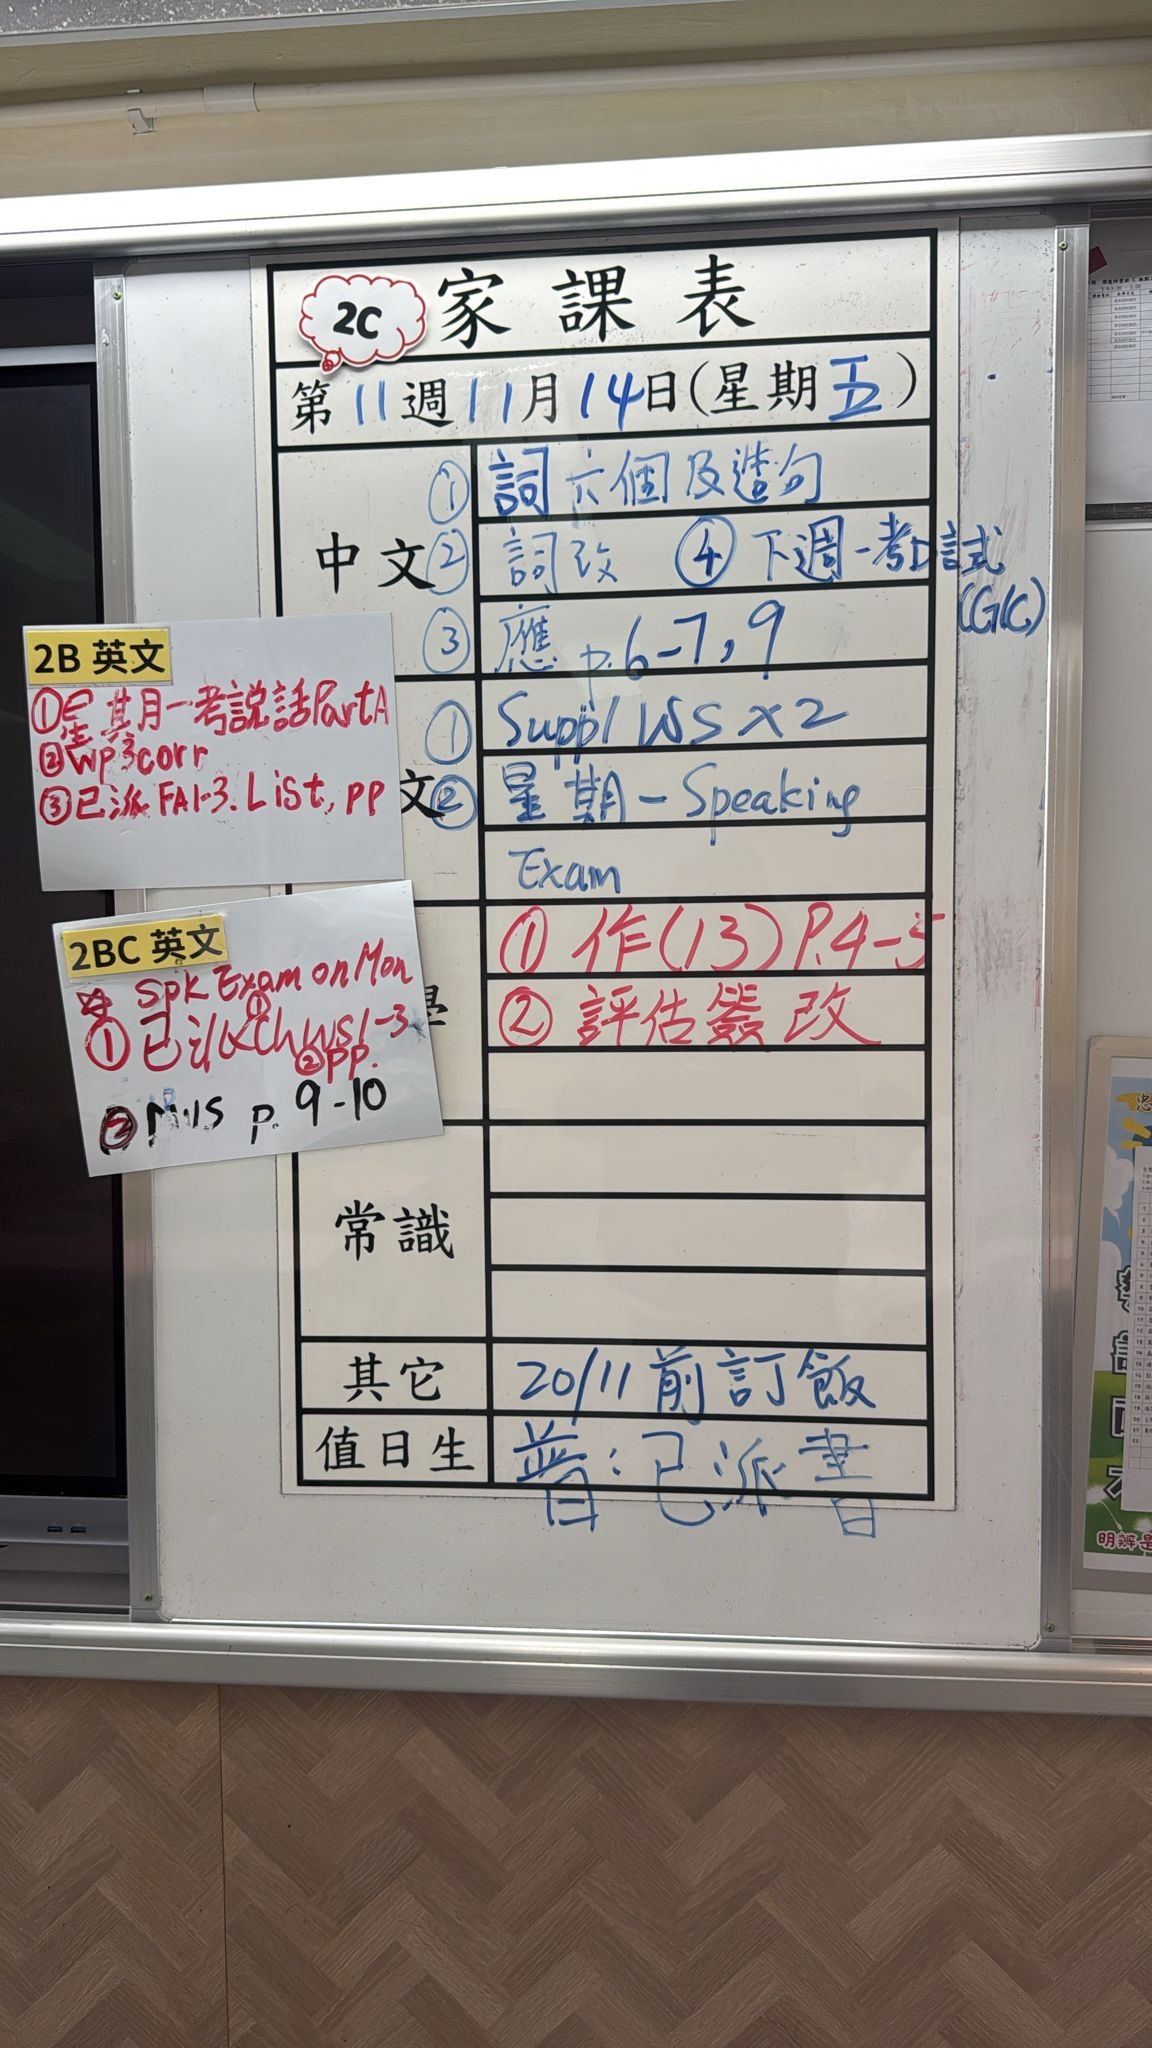 2C 家課表
第 11 週 11 月 14 日(星期五)
中文
① 詞六個及造句
② 詞改 ④ 下週一考口試
(GIC)
③ 應 p.6-7, 9
文
① Suppl WS x2
② 星期一 Speaking
Exam
① 作(13) P.4-5
② 評估簽改
常識
其它
20/11 前訂飯
值日生
普:已派書
2B 英文
①星其月一考説話Part A
②wp3corr
③已派 FA1-3. List, pp
2BC 英文
spk Exam on Mon
① 已派 ① Ch WS1-3
② pp.
② p. 9-10
明辨是